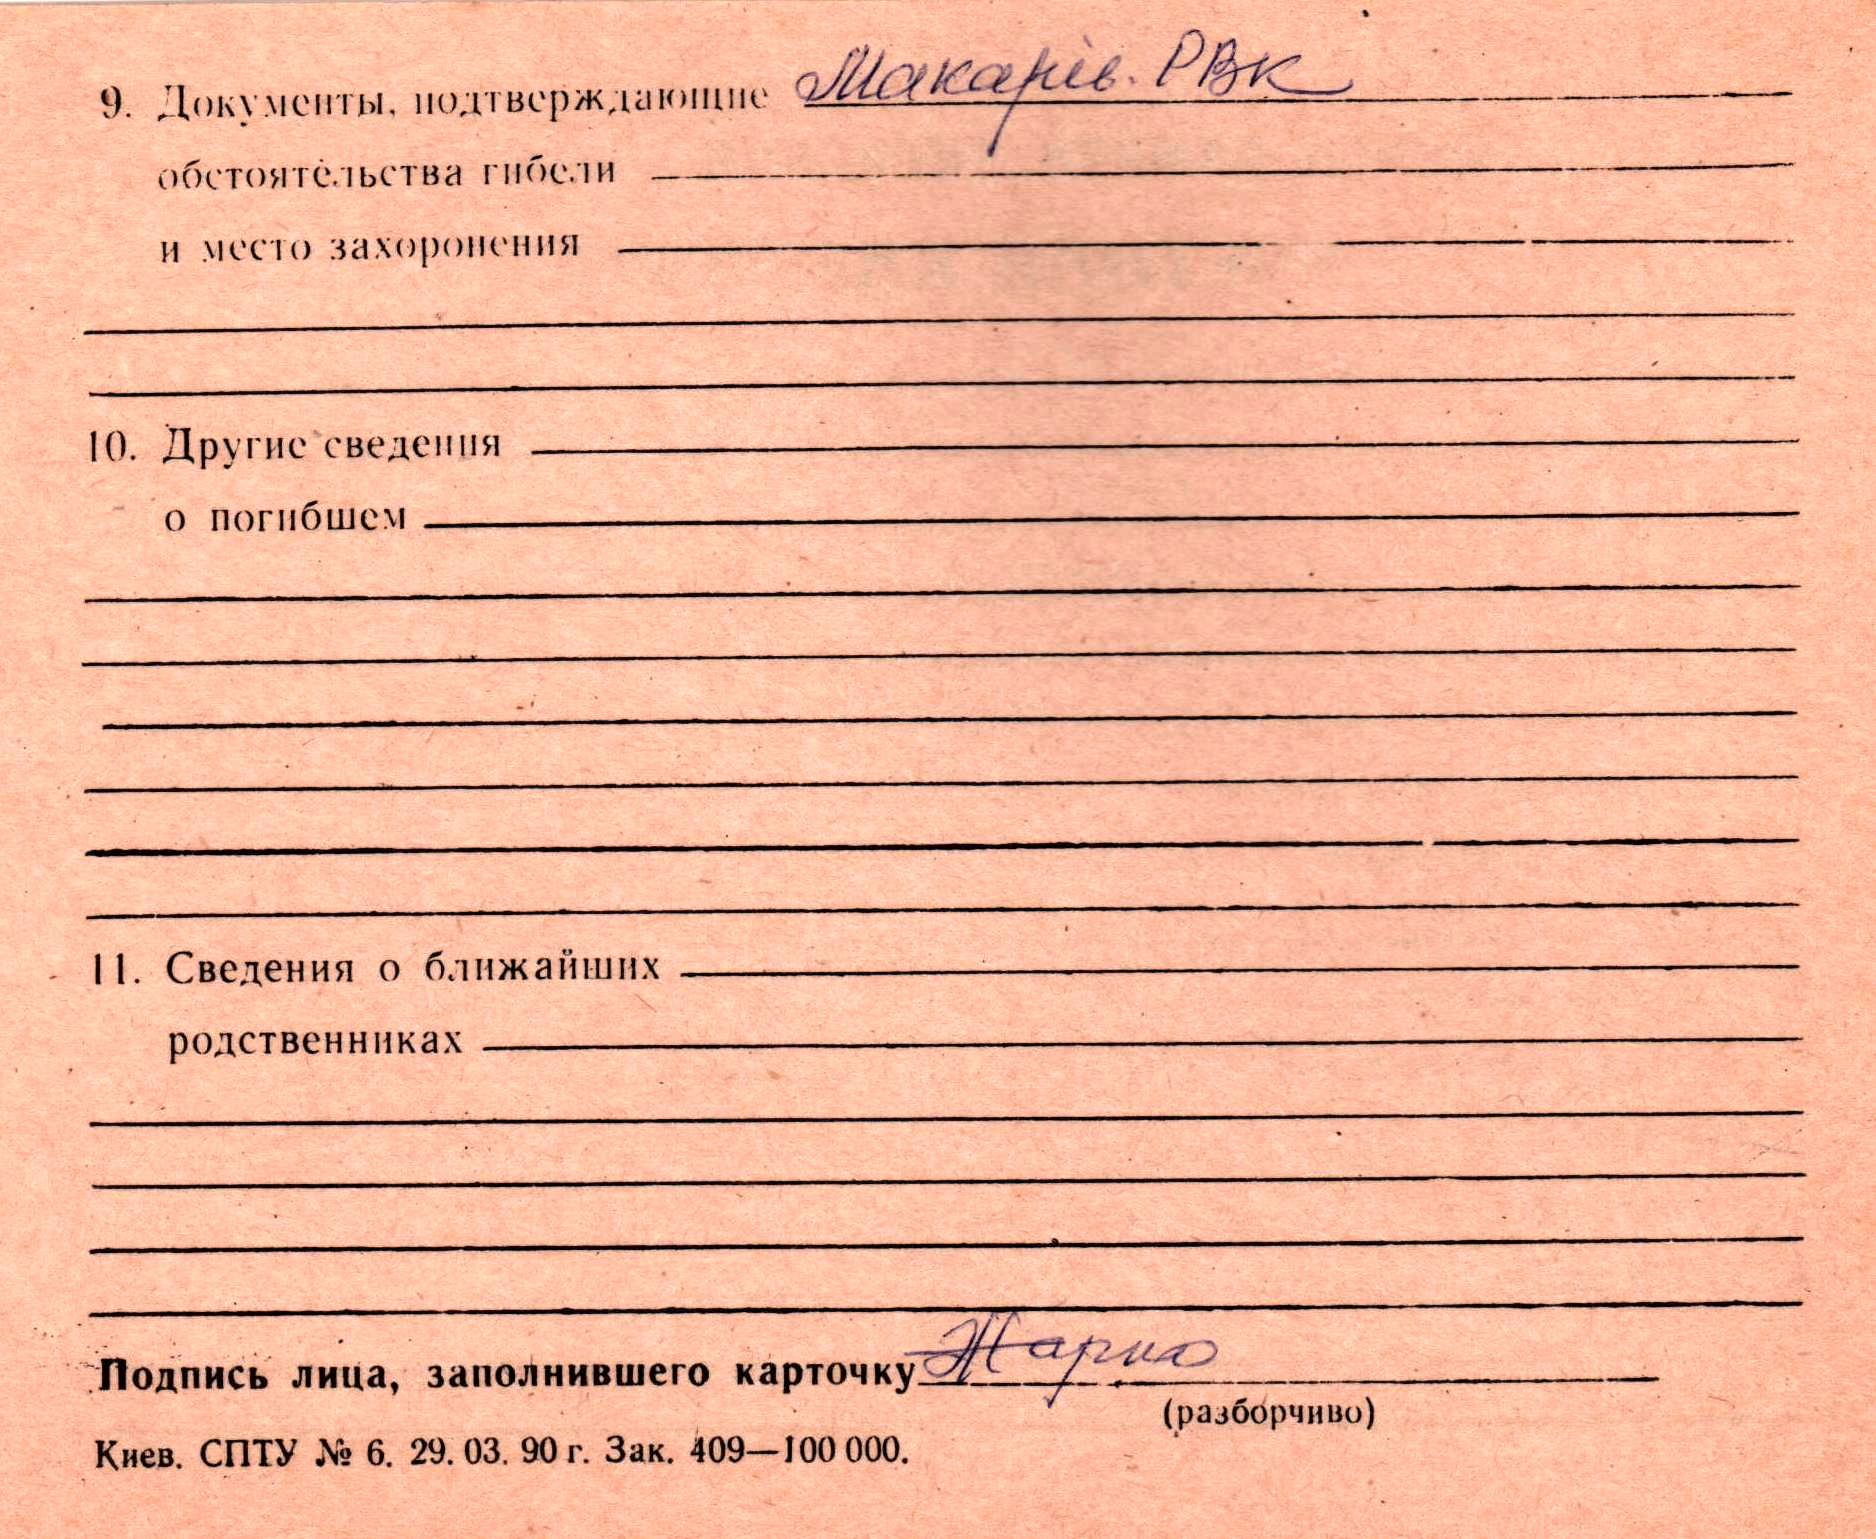 9. Документы, подтверждающие Макарів. РВК
обстоятельства гибели
и место захоронения
10. Другие сведения
о погибшем
11. Сведения о ближайших
родственниках
Подпись лица, заполнившего карточку
(разборчиво)
Киев. СПТУ № 6. 29. 03. 90 г. Зак. 409—100 000.